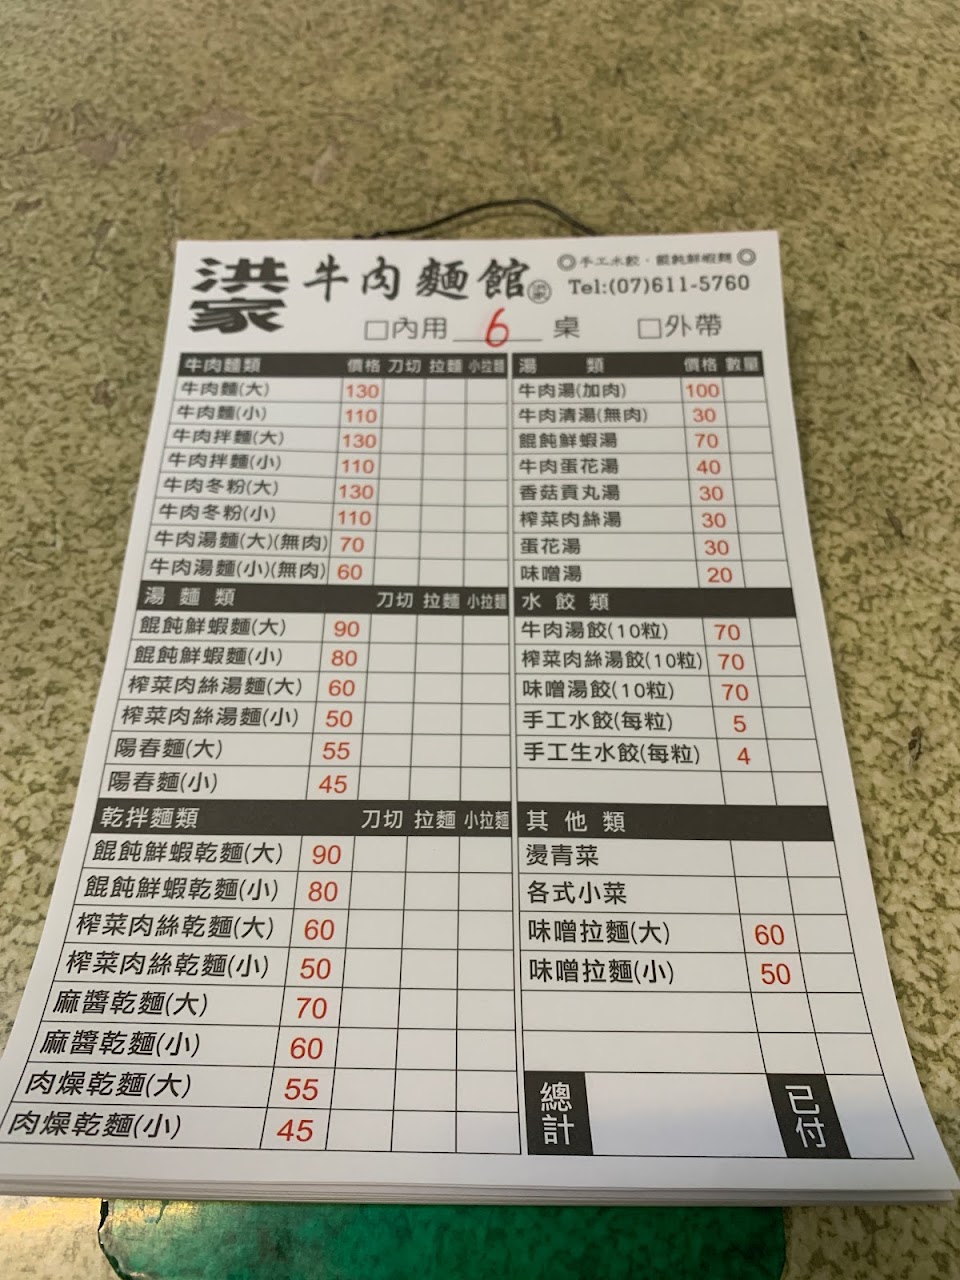 洪家 牛肉麵館
◎手工水餃・餛飩鮮蝦麵◎
Tel:(07)611-5760
□內用 6 桌 □外帶
牛肉麵類 價格 刀切 拉麵 小拉麵
牛肉麵(大) 130
牛肉麵(小) 110
牛肉拌麵(大) 130
牛肉拌麵(小) 110
牛肉冬粉(大) 130
牛肉冬粉(小) 110
牛肉湯麵(大)(無肉) 70
牛肉湯麵(小)(無肉) 60
湯麵類 刀切 拉麵 小拉麵
餛飩鮮蝦麵(大) 90
餛飩鮮蝦麵(小) 80
榨菜肉絲湯麵(大) 60
榨菜肉絲湯麵(小) 50
陽春麵(大) 55
陽春麵(小) 45
乾拌麵類 刀切 拉麵 小拉麵
餛飩鮮蝦乾麵(大) 90
餛飩鮮蝦乾麵(小) 80
榨菜肉絲乾麵(大) 60
榨菜肉絲乾麵(小) 50
麻醬乾麵(大) 70
麻醬乾麵(小) 60
肉燥乾麵(大) 55
肉燥乾麵(小) 45
湯類 價格 數量
牛肉湯(加肉) 100
牛肉清湯(無肉) 30
餛飩鮮蝦湯 70
牛肉蛋花湯 40
香菇貢丸湯 30
榨菜肉絲湯 30
蛋花湯 30
味噌湯 20
水餃類
牛肉湯餃(10粒) 70
榨菜肉絲湯餃(10粒) 70
味噌湯餃(10粒) 70
手工水餃(每粒) 5
手工生水餃(每粒) 4
其他類
燙青菜
各式小菜
味噌拉麵(大) 60
味噌拉麵(小) 50
總計 已付